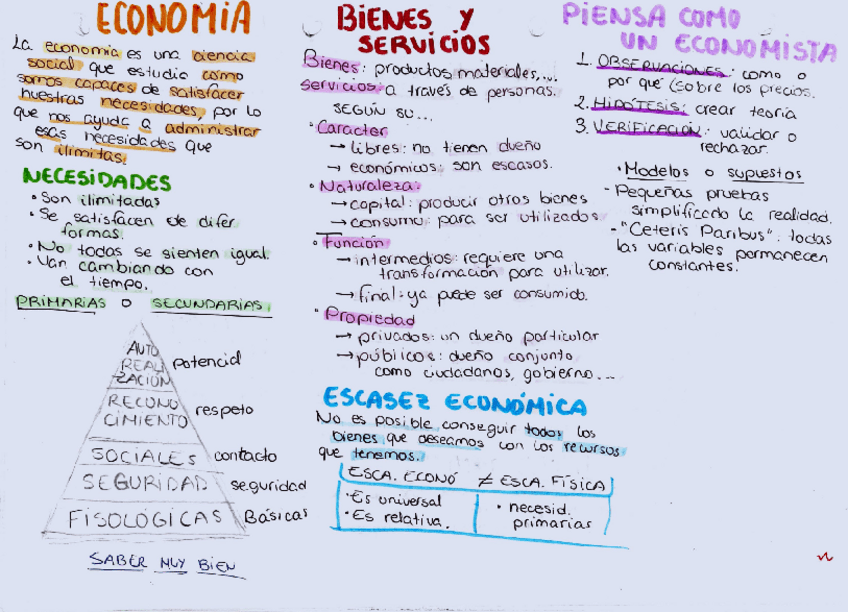 ECONOMIA
La economía es una ciencia
social que estudia como
somos capaces de satisfacer
nuestras necesidades, por lo
que nos ayuda a administrar
esas necesidades que
son ilimitas.
NECESIDADES
• Son ilimitadas
• Se satisfacen de difer
formas.
• No todas se sienten igual.
• Van cambiando con
el tiempo.
PRIMARIAS O SECUNDARIAS.
AUTO
REALI
ZACIÓN potencial
RECONO
CIMIENTO respeto
SOCIALES contacto
SEGURIDAD seguridad
FISOLÓGICAS Básicas
SABER MUY BIEN
BIENES Y
SERVICIOS
Bienes: productos materiales,...
servicios: a través de personas.
SEGÚN SU...
• Caracter
→ libres: no tienen dueño
→ económicos: son escasos.
• Naturaleza:
→ capital: producir otros bienes
→ consumo: para ser utilizados
• Función
→ intermedios: requiere una
transformación para utilizar.
→ final: ya puede ser consumido.
• Propiedad
→ privados: un dueño particular
→ públicos: dueño conjunto
como ciudadanos, gobierno...
ESCASEZ ECONÓMICA
No es posible conseguir todos los
bienes que deseamos con los recursos
que tenemos.
ESCA. ECONÓ ≠ ESCA. FÍSICA
• Es universal
• Es relativa.
• necesid.
primarias
PIENSA COMO
UN ECONOMISTA
1. OBSERVACIONES: como o
por qué (sobre los precios.
2. HIPÓTESIS: crear teoría
3. VERIFICACIÓN: validar o
rechazar.
• Modelos o supuestos
- Pequeñas pruebas
simplificado la realidad.
- "Ceteris Paribus": todas
las variables permanecen
constantes.